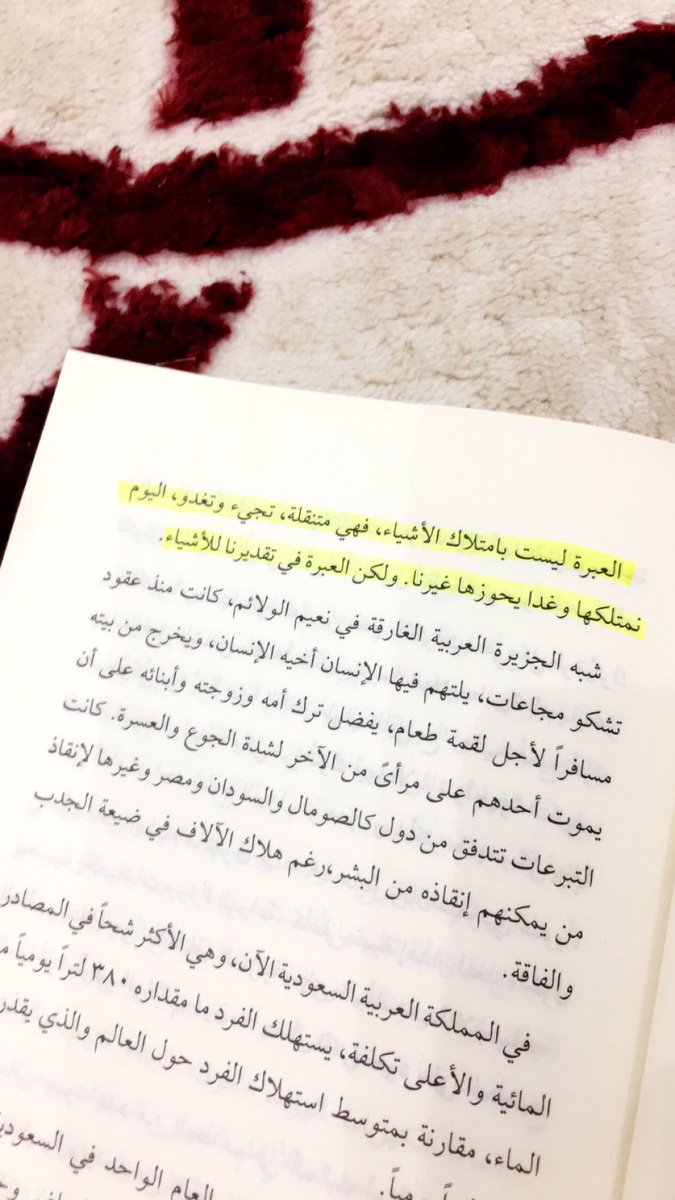 العبرة ليست بامتلاك الأشياء، فهي متنقلة، تجيء وتغدو، اليوم
نمتلكها وغدا يحوزها غيرنا. ولكن العبرة في تقديرنا للأشياء.
شبه الجزيرة العربية الغارقة في نعيم الولائم، كانت منذ عقود
تشكو مجاعات، يلتهم فيها الإنسان أخيه الإنسان، ويخرج من بيته
مسافراً لأجل لقمة طعام، يفضل ترك أمه وزوجته وأبنائه على أن
يموت أحدهم على مرأىً من الآخر لشدة الجوع والعسرة. كانت
التبرعات تتدفق من دول كالصومال والسودان ومصر وغيرها لإنقاذ
من يمكنهم إنقاذه من البشر،رغم هلاك الآلاف في ضيعة الجدب
والفاقة.
في المملكة العربية السعودية الآن، وهي الأكثر شحاً في المصادر
المائية والأعلى تكلفة، يستهلك الفرد ما مقداره ٣٨٠ لتراً يومياً
الماء، مقارنة بمتوسط استهلاك الفرد حول العالم والذي يقدر
يومياً.
العام الواحد في